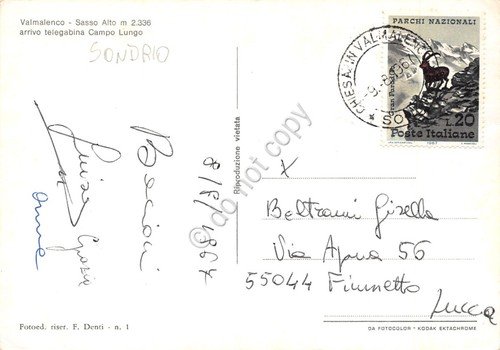 Valmalenco - Sasso Alto m 2.336
arrivo telegabina Campo Lungo
SONDRIO
Bacioni
Luisa
Grazia
Anna
8/8/1967
Riproduzione vietata
do not copy
PARCHI NAZIONALI
L.20
Poste Italiane
1967
CHIESA IN VALMALENCO
SO
Beltrami Gisella
Via Apua 56
55044 Fiumetto
Lucca
Fotoed. riser. F. Denti - n. 1
DA FOTOCOLOR KODAK EKTACHROME